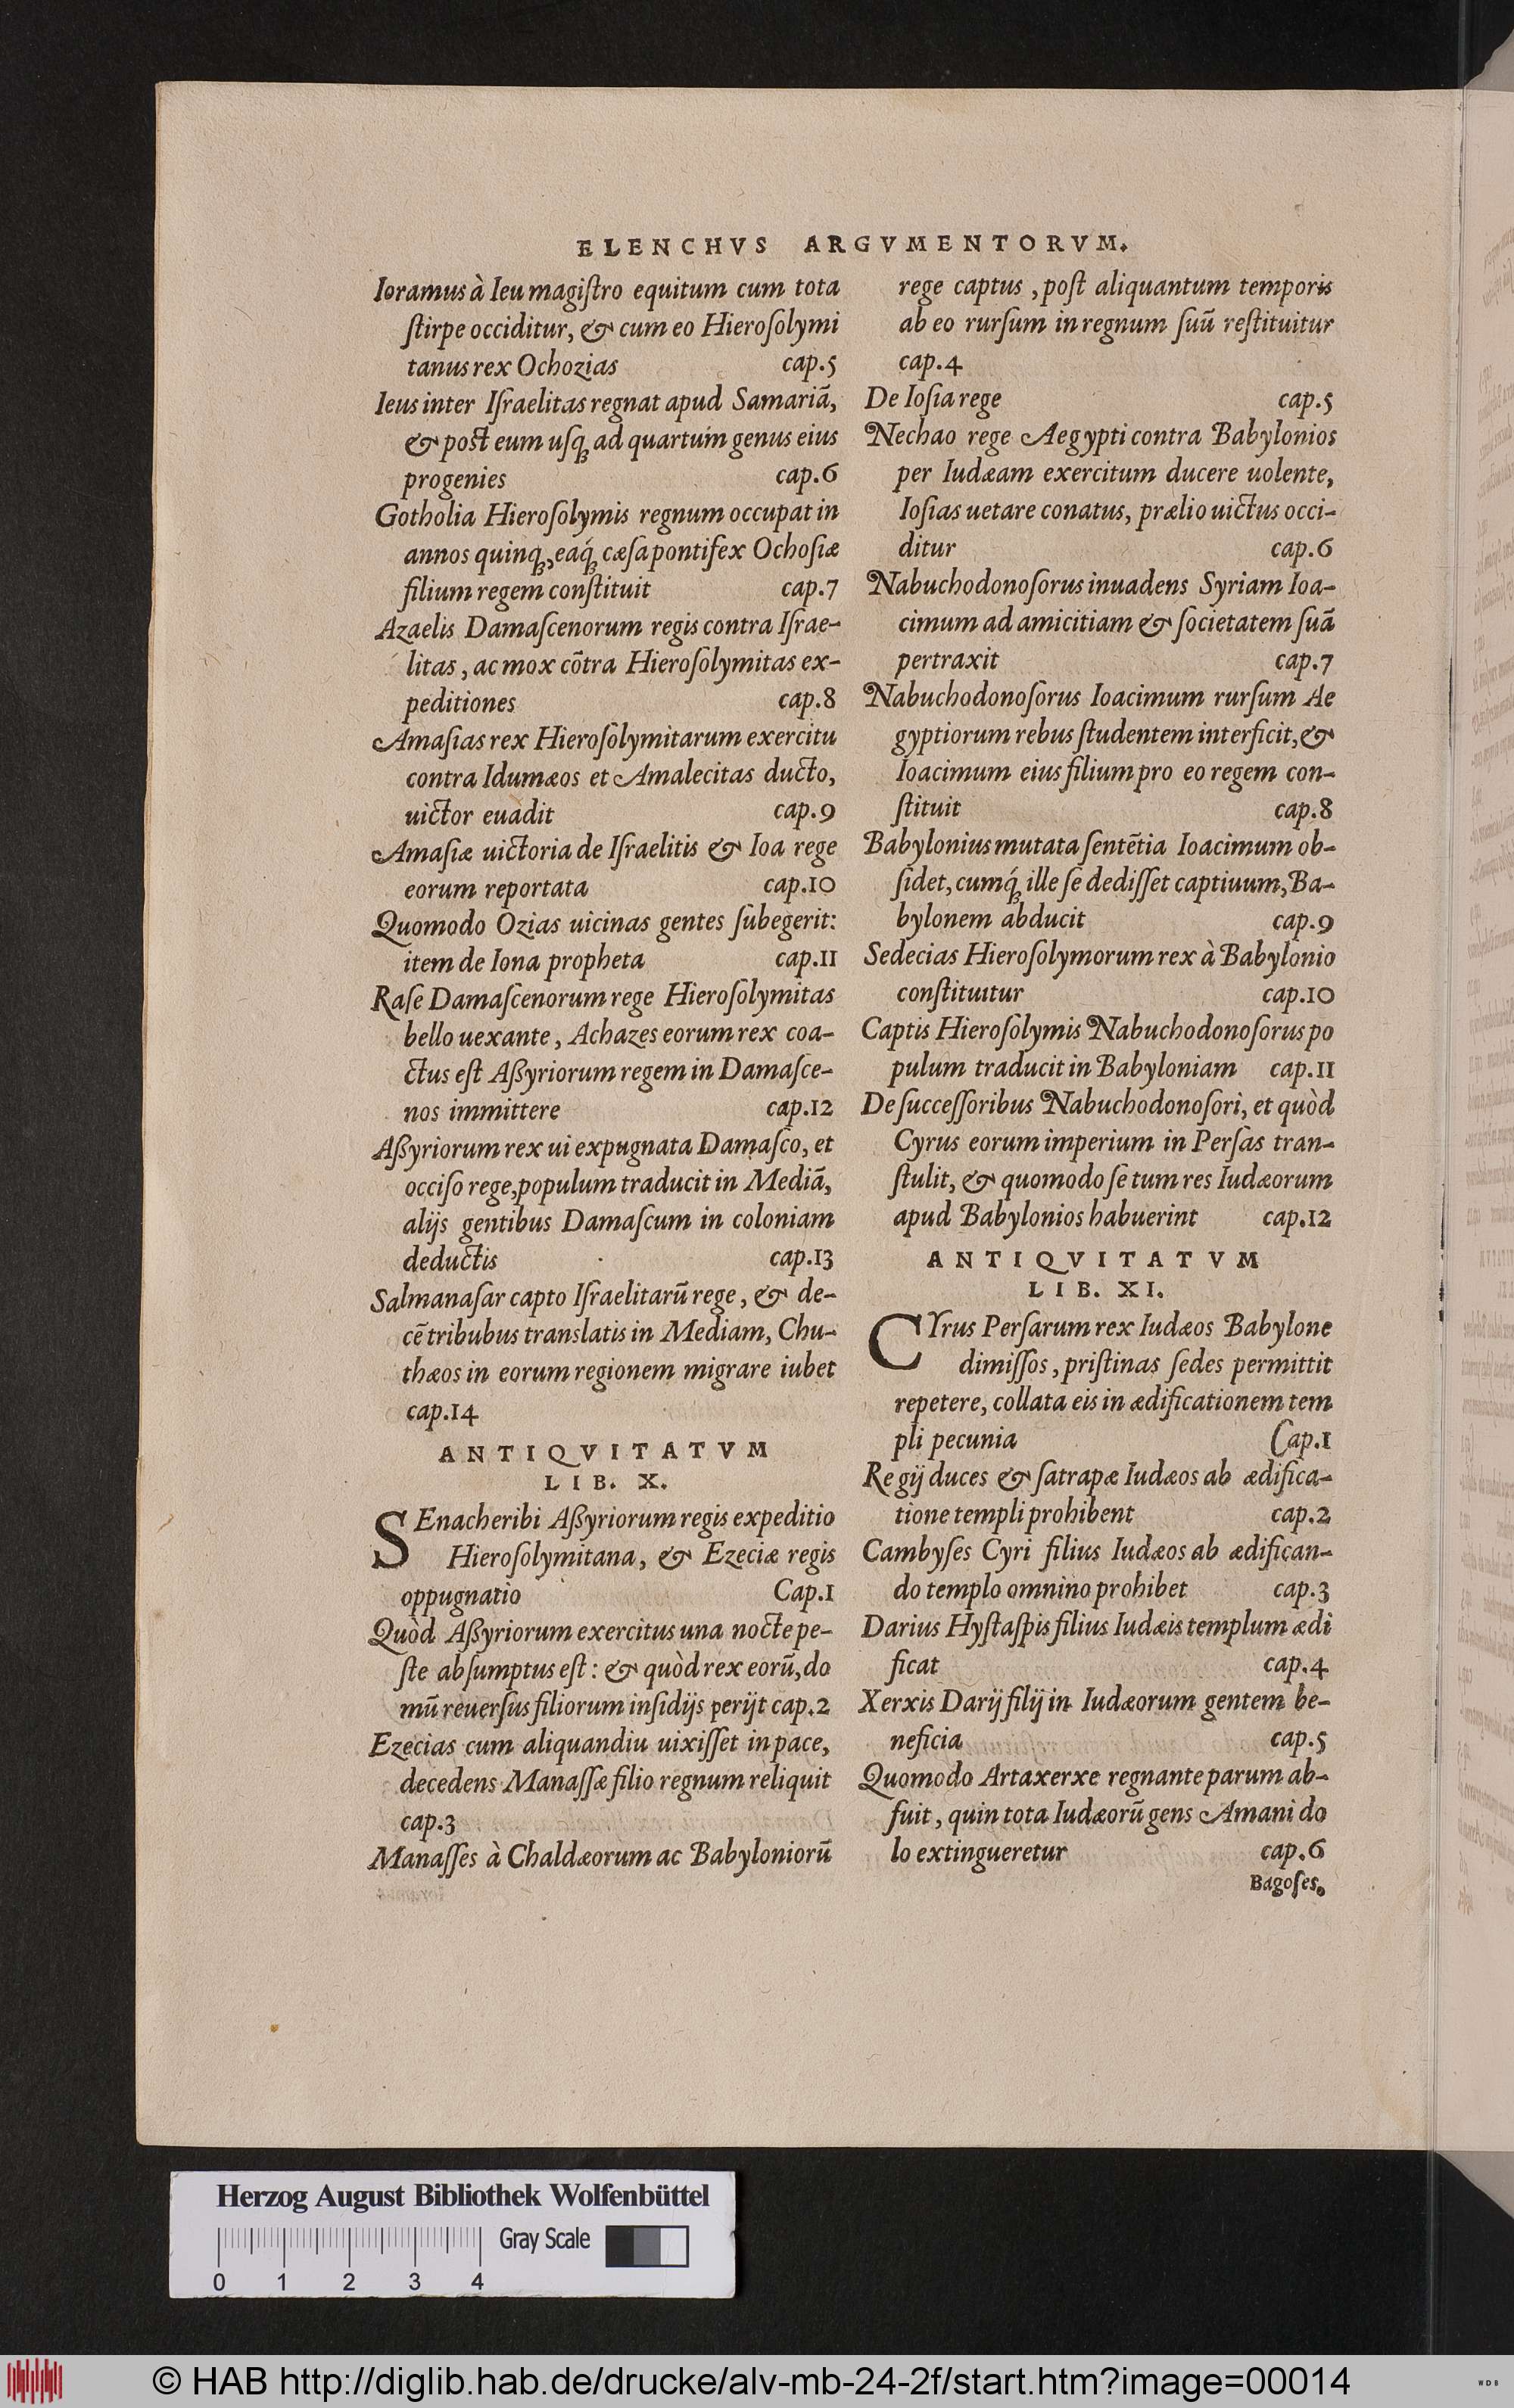 ELENCHVS ARGVMENTORVM.
Ioramus à Ieu magiſtro equitum cum tota
ſtirpe occiditur, & cum eo Hieroſolymi
tanus rex Ochozias cap.5
Ieus inter Iſraelitas regnat apud Samariã,
& poſt eum uſqꝫ ad quartum genus eius
progenies cap.6
Gotholia Hieroſolymis regnum occupat in
annos quinqꝫ, eaqꝫ́ cæſa pontifex Ochoſiæ
filium regem conſtituit cap.7
Azaelis Damaſcenorum regis contra Iſrae-
litas, ac mox cõtra Hieroſolymitas ex-
peditiones cap.8
Amaſias rex Hieroſolymitarum exercitu
contra Idumæos et Amalecitas ducto,
uictor euadit cap.9
Amaſiæ uictoria de Iſraelitis & Ioa rege
eorum reportata cap.10
Quomodo Ozias uicinas gentes ſubegerit:
item de Iona propheta cap.11
Raſe Damaſcenorum rege Hieroſolymitas
bello uexante, Achazes eorum rex coa-
ctus eſt Aßyriorum regem in Damaſce-
nos immittere cap.12
Aßyriorum rex ui expugnata Damaſco, et
occiſo rege, populum traducit in Mediã,
alijs gentibus Damaſcum in coloniam
deductis cap.13
Salmanaſar capto Iſraelitarũ rege, & de-
cẽ tribubus translatis in Mediam, Chu-
thæos in eorum regionem migrare iubet
cap.14
ANTIQVITATVM
LIB. X.
SEnacheribi Aßyriorum regis expeditio
Hieroſolymitana, & Ezeciæ regis
oppugnatio Cap.1
Quòd Aßyriorum exercitus una nocte pe-
ſte abſumptus eſt: & quòd rex eorũ, do
mũ reuerſus filiorum inſidijs perijt cap.2
Ezecias cum aliquandiu uixiſſet in pace,
decedens Manaſſæ filio regnum reliquit
cap.3
Manaſſes à Chaldæorum ac Babyloniorũ
rege captus, poſt aliquantum temporis
ab eo rurſum in regnum ſuũ reſtituitur
cap.4
De Ioſia rege cap.5
Nechao rege Aegypti contra Babylonios
per Iudæam exercitum ducere uolente,
Ioſias uetare conatus, prælio uictus occi-
ditur cap.6
Nabuchodonoſorus inuadens Syriam Ioa-
cimum ad amicitiam & ſocietatem ſuã
pertraxit cap.7
Nabuchodonoſorus Ioacimum rurſum Ae
gyptiorum rebus ſtudentem interficit, &
Ioacimum eius filium pro eo regem con-
ſtituit cap.8
Babylonius mutata ſentẽtia Ioacimum ob-
ſidet, cumqꝫ́ ille ſe dediſſet captiuum, Ba-
bylonem abducit cap.9
Sedecias Hieroſolymorum rex à Babylonio
conſtituitur cap.10
Captis Hieroſolymis Nabuchodonoſorus po
pulum traducit in Babyloniam cap.11
De ſucceſſoribus Nabuchodonoſori, et quòd
Cyrus eorum imperium in Perſas tran-
ſtulit, & quomodo ſe tum res Iudæorum
apud Babylonios habuerint cap.12
ANTIQVITATVM
LIB. XI.
CYrus Perſarum rex Iudæos Babylone
dimiſſos, priſtinas ſedes permittit
repetere, collata eis in ædificationem tem
pli pecunia Cap.1
Regij duces & ſatrapæ Iudæos ab ædifica-
tione templi prohibent cap.2
Cambyſes Cyri filius Iudæos ab ædifican-
do templo omnino prohibet cap.3
Darius Hyſtaſpis filius Iudæis templum ædi
ficat cap.4
Xerxis Darij filij in Iudæorum gentem be-
neficia cap.5
Quomodo Artaxerxe regnante parum ab-
fuit, quin tota Iudæorũ gens Amani do
lo extingueretur cap.6
Bagoſes.
Herzog August Bibliothek Wolfenbüttel
Gray Scale
0 1 2 3 4
© HAB http://diglib.hab.de/drucke/alv-mb-24-2f/start.htm?image=00014
WDB